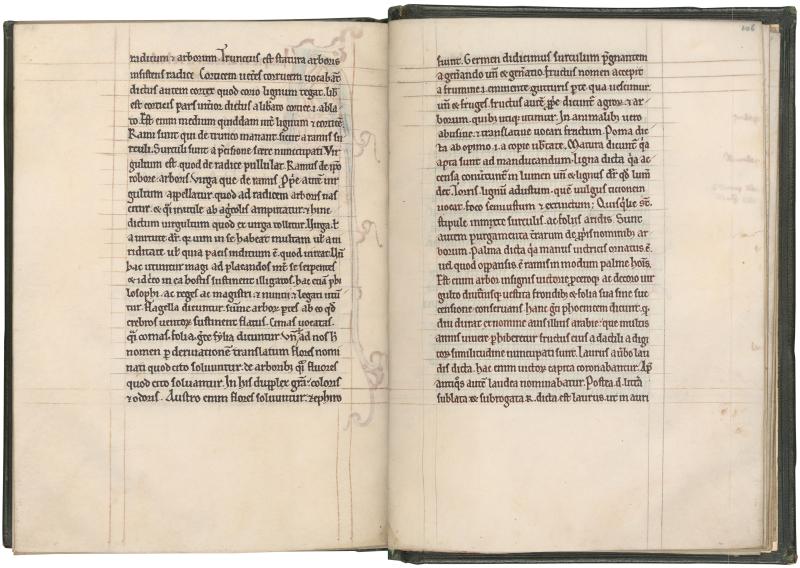 radicum ⁊ arborum. Truncus est statura arboris
insistens radice. Corticem ueteres corucem vocabāt
dictus autem cortex quod corio lignum tegat. lib̄
est corticis pars interior dictus a liberato cortice. i. abla
to. Est enim medium quiddam int̄ lignum ⁊ corticē.
Rami sunt qui de trunco manant. sicut a ramis su
rculi. Surculi sunt a p̄cisione serre nuncupati. Vir
gultum est quod de radice pullulat. Ramus de ip̄o
robore arboris. Virga que de ramis. Ppͥe autē uir
gultum appellatur quod ad radicem arboris nas
citur. ⁊ qͣi inutile ab agͥcolis amputatur. ⁊ hinc
dictum uirgultum quod ex uirga tollitur. Virga t̄
a uirtute dr̄. qͦ uim in se habeat multam. ul̄ a ui
riditate. ul̄ quia pacis indicium ē. quod uireat. Vn̄
hac utuntur magi ad placandos int̄ se serpentes
⁊ idcͥrco in ea hos sustinent illigatos. hac etiā phi
losophi. ac reges. ac magistri. ⁊ nuntii ⁊ legati utū
tur. Flagella dicuntur sūme arborū ptes ab eo qd̄
crebros uentorū sustinent flatus. Comas uocatas
qͣi comas. folia. grece fylia dicuntur. Vn̄ ad nos h̄
nomen p deriuationē translatum. Flores nomi
nati quod cito soluuntur de arboribꝫ qͣi fluores
quod cito soluantur. In his dupplex grā. coloris
⁊ odoris. Austro enim flores soluuntur. zephiro
106
fiunt. Germen dicimus surculum p̄gnantem
a gerendo. un̄ ⁊ geͥnatio. fructus nomen accepit
a frumine. i. eminente gutturis pte qua uescimur.
un̄ ⁊ fruges. fructus autē ppͥe dicunt̄ agrorū ⁊ ar-
borum. quibꝫ utiqꝫ utimur. In animalibꝫ uero
abusiue ⁊ translatiue uocari fructum. Poma dic
ta ab opimo. i. a copie ubertate. Matura dicunt̄ qͣa
apta sunt ad manducandum. ligna dicta qͣa ac
censa conuertunt̄ in lumen. un̄ ⁊ lignus dr̄. qd̄ lum̄
det. Torris lignū adustum. quē uulgus ticionem
uocat. foco semiustum ⁊ extinctum. Quisqͥlie st̄.
stipule inmixte surculis. ac foliis aridis. Sunt
autem purgamenta terrarum de ppͥis nominibꝫ ar
borum. Palma dicta qͣa manus uictricis ornatus ē.
uel quod oppansis ē ramis in modum palme hoīs.
Est enim arbor insignis uictorie pceroqꝫ ac decoro uir
gulto diutinisqꝫ uestita frondibꝫ ⁊ folia sua sine suc
censione conseruans. hanc gͥi phoenicem dicunt. qͦ
diu durat ex nomine auis illius arabie. que multis
annis uiuere phibetur. fructus eius a dactili a digi
torū similitudine nuncupati sunt. Laurus auͥbo lau
dis dicta. hac enim uictorū capita coronabantur. Apd̄
antiqͦs autē laudea nominabatur. Postea d. litt̄a
sublata ⁊ subrogata R. dicta est laurus. ut in auri